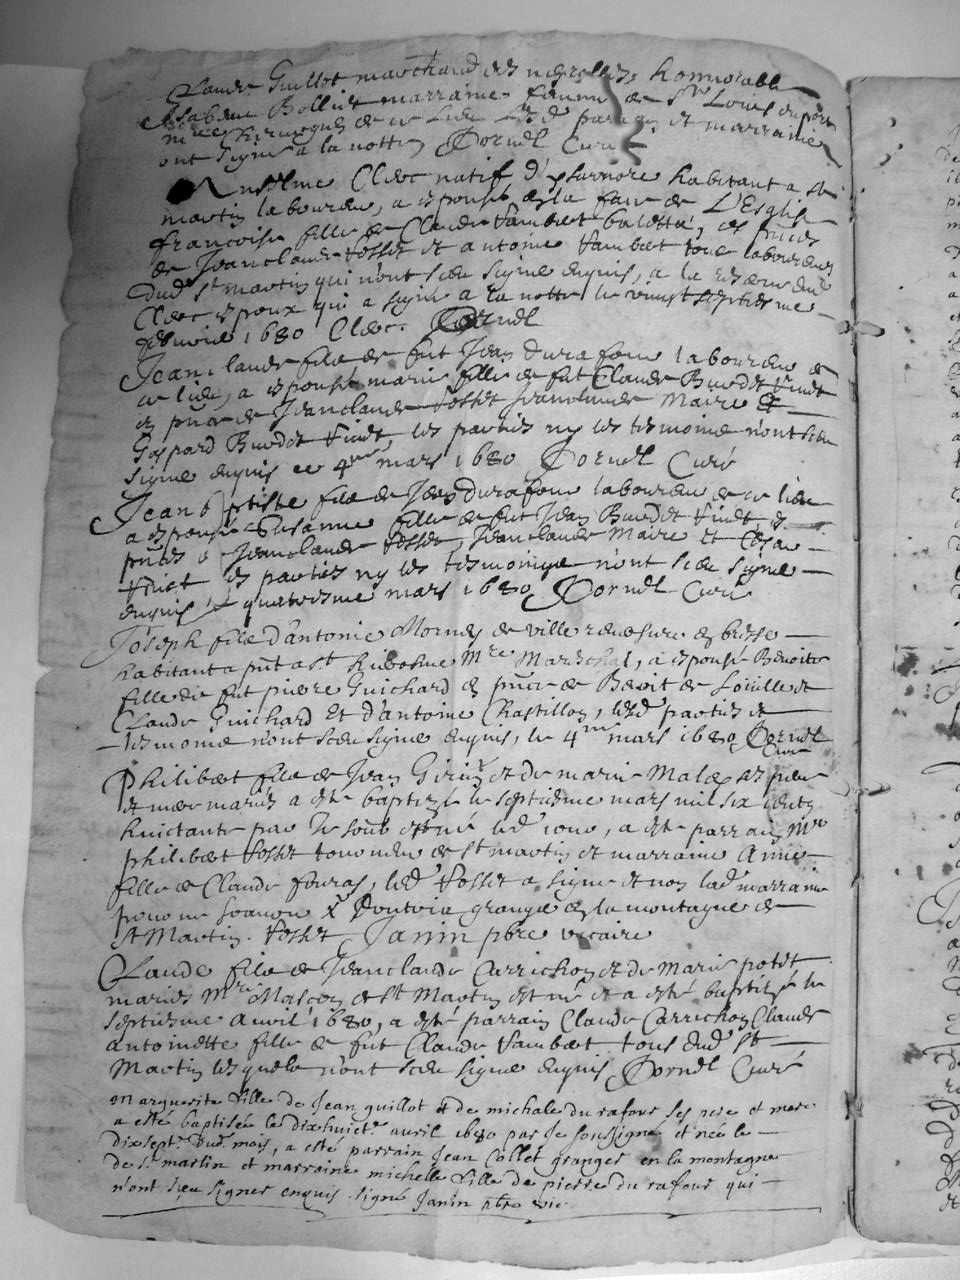 Claude Guillot marchand des nigrolles, honnorable
Isabeau Bollut marraine femme de Sr Louis dupont
ont signe a la notte Dornel Curé
Anselme Clerc natif d' habitant a st
martin laboureur, a espousé en la face de L'Esglise
francoise fille de Claude Vambert balette, es pñces
de Jeanclaude Vosset et antoine Vambert tous laboureurs
dud st martin qui n'ont sceu signe enquis, a la reserve dud
Clerc espoux qui a signe a la notte le vingt septiesme
febvrier 1680 Clerc. Dornel
Jeanclaude filz de fut Jean Durafour laboureur de
ce lieu, a espousé marie fille de fut Claude Burdet Vindt
es pñce de Jeanclaude Vosset Jeanclaude Maire Et
Gaspard Burdet Vindt, les parties ny les tesmoins n'ont sceu
signe enquis ce 4me mars 1680 Dornel Curé
Jean bptiste filz de Jean Durafour laboureur de ce lieu
a espousé Susanne fille de fut Jean Burdet Vindt, es
pñces de Jeanclaude Vosset, Jeanclaude Maire et Cesar
Vindt les parties ny les tesmoings n'ont sceu signe
enquis le quatriesme mars 1680 Dornel Curé
Joseph filz d'antoine Mornay de ville reversure en bresse
habitant a pñt a st hierosme Mre Mareschal, a espousé Benoite
fille de fut pierre Guichard es pñce de Benoit de Louille et
Claude Guichard Et d'antoine Chastillon, lesd parties et
tesmoins n'ont sceu signe enquis, le 4me mars 1680 Dornel
Curé
Philibert filz de Jean Girin et de marie Malet ses pere
et mere mariés a esté baptizé le septiesme mars mil six cents
huictante par Je soub et né led jour, a esté parrain Mre
philibert Vosset tourneur de st martin et marraine Anne
fille de Claude fouras, led Vosset a signe et non lad marraine
pour ne scavoir grange en la montagne de
st Martin. Vosset Janin pbre vicaire
Claude filz de Jeanclaude Carrichon et de Marie petit
mariés Mre Masson de St Martin est né et a esté baptizé le
septiesme Avril 1680, a esté parrain Claude Carrichon Claude
antoinette fille de fut Claude Vambert tous dud st
Martin lesquels n'ont sceu signe enquis Dornel Curé
marguerite fille de Jean guillot et de michale du rafour ses pere et mere
a esté baptisée le dixhuicte avril 1680 par Je soussigné et née le
dixsept dud mois, a esté parrain Jean Collet granger en la montagne
de st martin et marraine michelle fille de pierre du rafour qui
n'ont sceu signer enquis signe Janin pbre vic